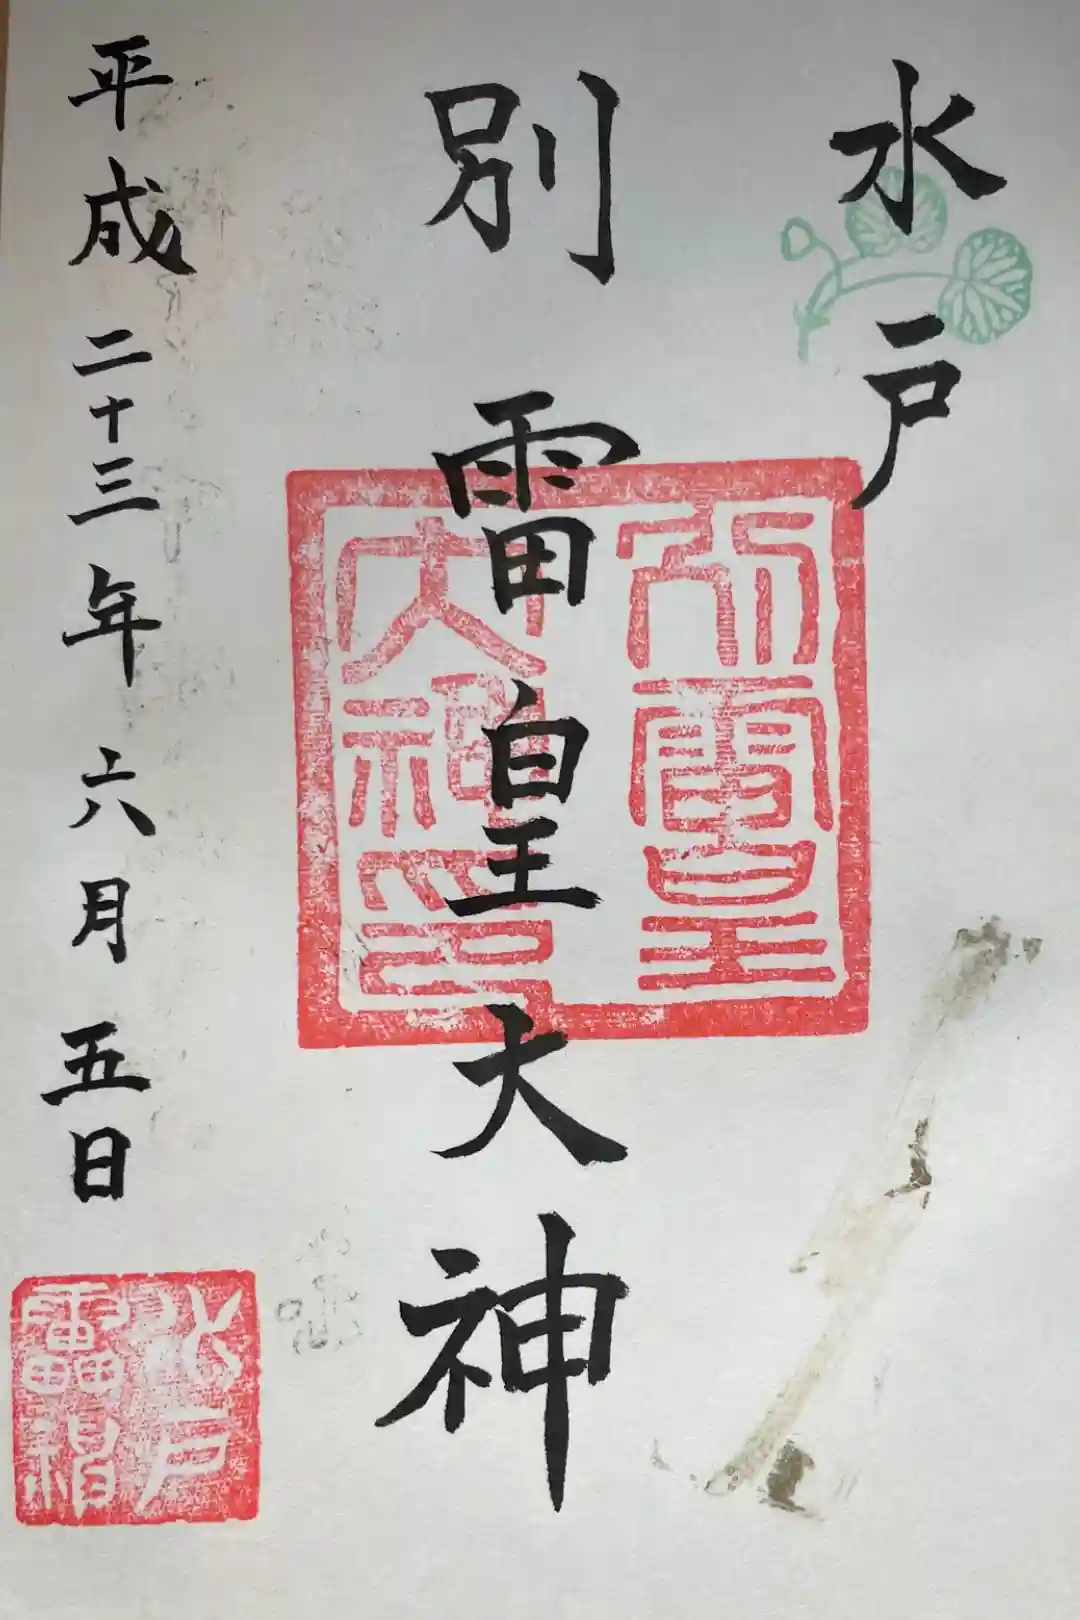 水戸
別雷皇大神
別雷皇
大神印
平成二十三年六月五日
水戸